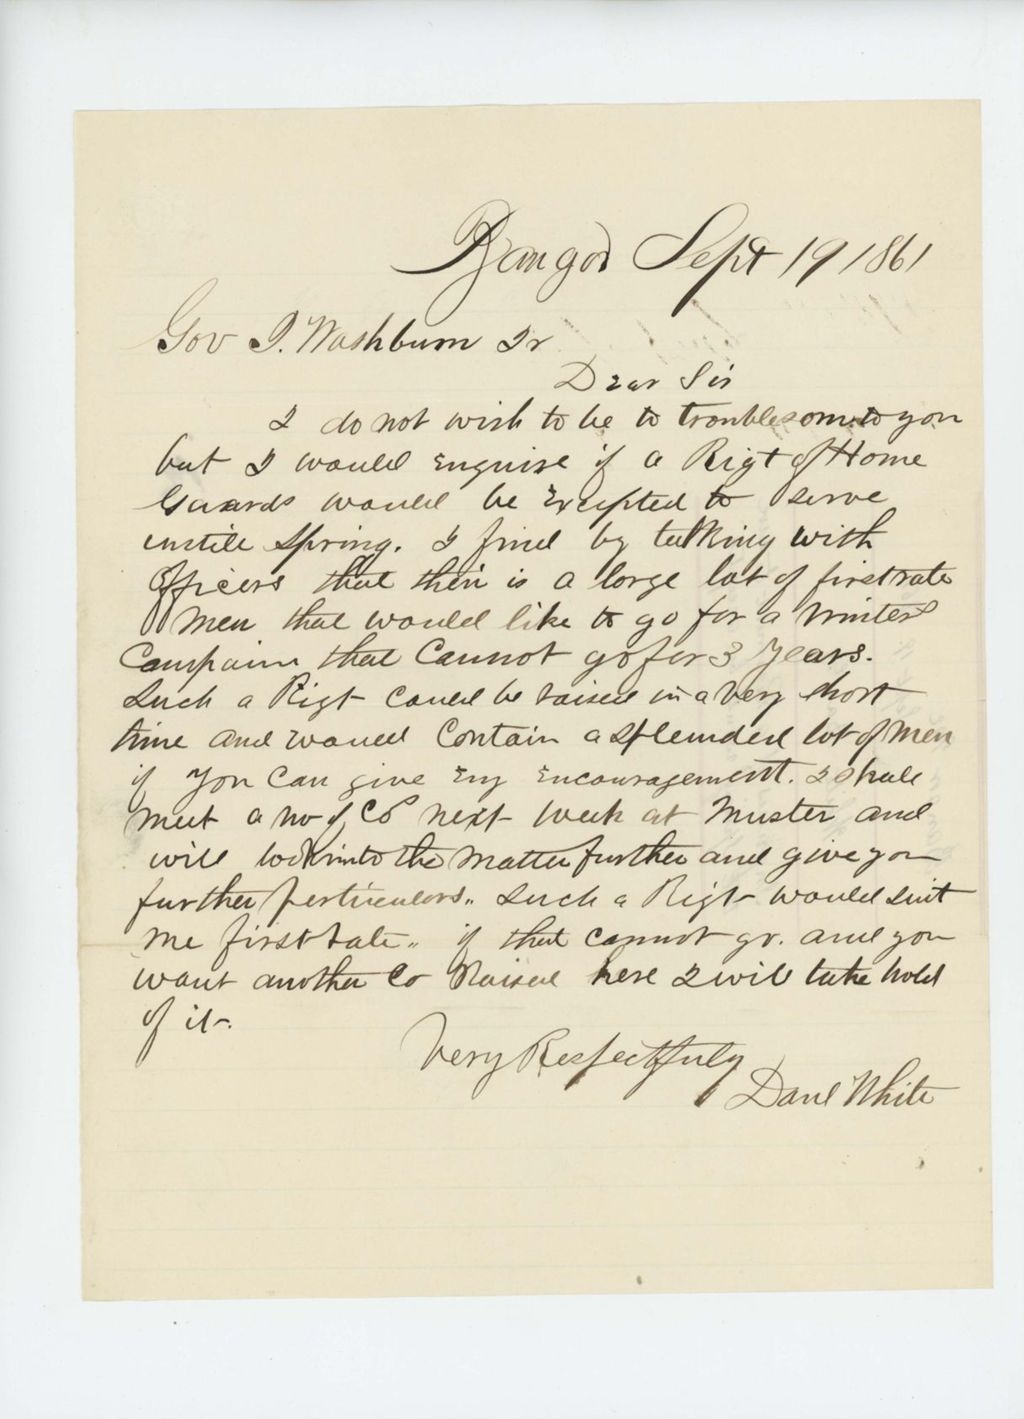 Bangor Sept 19 1861
Gov I. Washburn Jr
Dear Sir
I do not wish to be to troublesome to you
but I would enquire if a Rigt of Home
Guards would be excepted to serve
untill Spring. I find by talking with
Officers that their is a large lot of first rate
men that would like to go for a Winter
Campain that Cannot go for 3 Years.
Such a Rigt could be raised in a very short
time and would Contain a splended lot of men
if you Can give eny encouragement. I shall
meet a no of Co next week at Muster and
will look into the matter further and give you
further perticulars. Such a Rigt would suit
me first rate. if that cannot go. and you
want another Co Raised here I will take hold
of it.
Very Respectfuly
Danl White